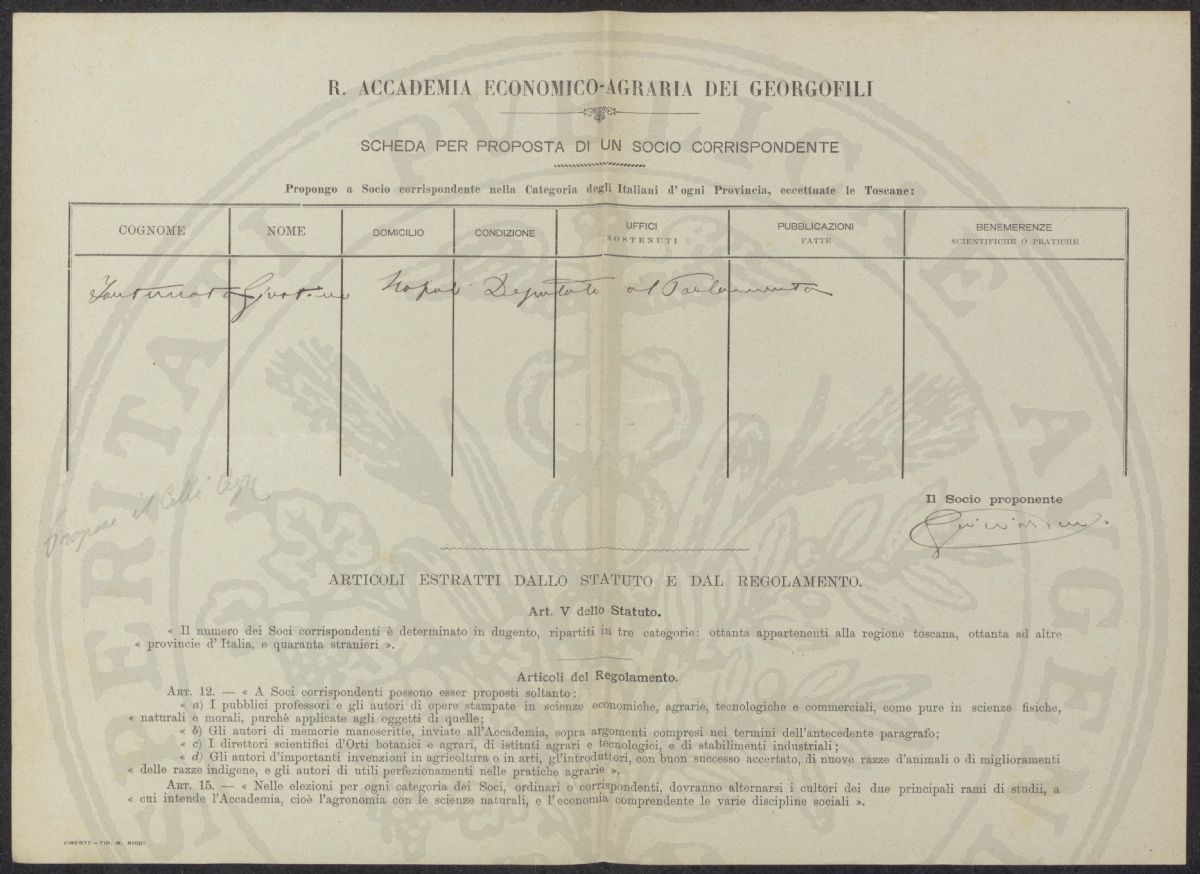 R. ACCADEMIA ECONOMICO-AGRARIA DEI GEORGOFILI
SCHEDA PER PROPOSTA DI UN SOCIO CORRISPONDENTE
Propongo a Socio corrispondente nella Categoria degli Italiani d'ogni Provincia, eccettuate le Toscane:
COGNOME NOME DOMICILIO CONDIZIONE UFFICI SOSTENUTI PUBBLICAZIONI FATTE BENEMERENZE SCIENTIFICHE O PRATICHE
Napoli Deputato al Parlamento
Propone il
Il Socio proponente
ARTICOLI ESTRATTI DALLO STATUTO E DAL REGOLAMENTO.
Art. V dello Statuto.
« Il numero dei Soci corrispondenti è determinato in dugento, ripartiti in tre categorie: ottanta appartenenti alla regione toscana, ottanta ad altre
« provincie d'Italia, e quaranta stranieri ».
Articoli del Regolamento.
ART. 12. — « A Soci corrispondenti possono esser proposti soltanto:
« a) I pubblici professori e gli autori di opere stampate in scienze economiche, agrarie, tecnologiche e commerciali, come pure in scienze fisiche,
« naturali e morali, purchè applicate agli oggetti di quelle;
« b) Gli autori di memorie manoscritte, inviate all'Accademia, sopra argomenti compresi nei termini dell'antecedente paragrafo;
« c) I direttori scientifici d'Orti botanici e agrari, di istituti agrari e tecnologici, e di stabilimenti industriali;
« d) Gli autori d'importanti invenzioni in agricoltura o in arti, gl'introduttori, con buon successo accertato, di nuove razze d'animali o di miglioramenti
« delle razze indigene, e gli autori di utili perfezionamenti nelle pratiche agrarie ».
ART. 15. — « Nelle elezioni per ogni categoria dei Soci, ordinari o corrispondenti, dovranno alternarsi i cultori dei due principali rami di studii, a
« cui intende l'Accademia, cioè l'agronomia con le scienze naturali, e l'economia comprendente le varie discipline sociali ».
FIRENZE – TIP. M. RICCI
PROSPERITATI PUBLICAE AUGENDAE